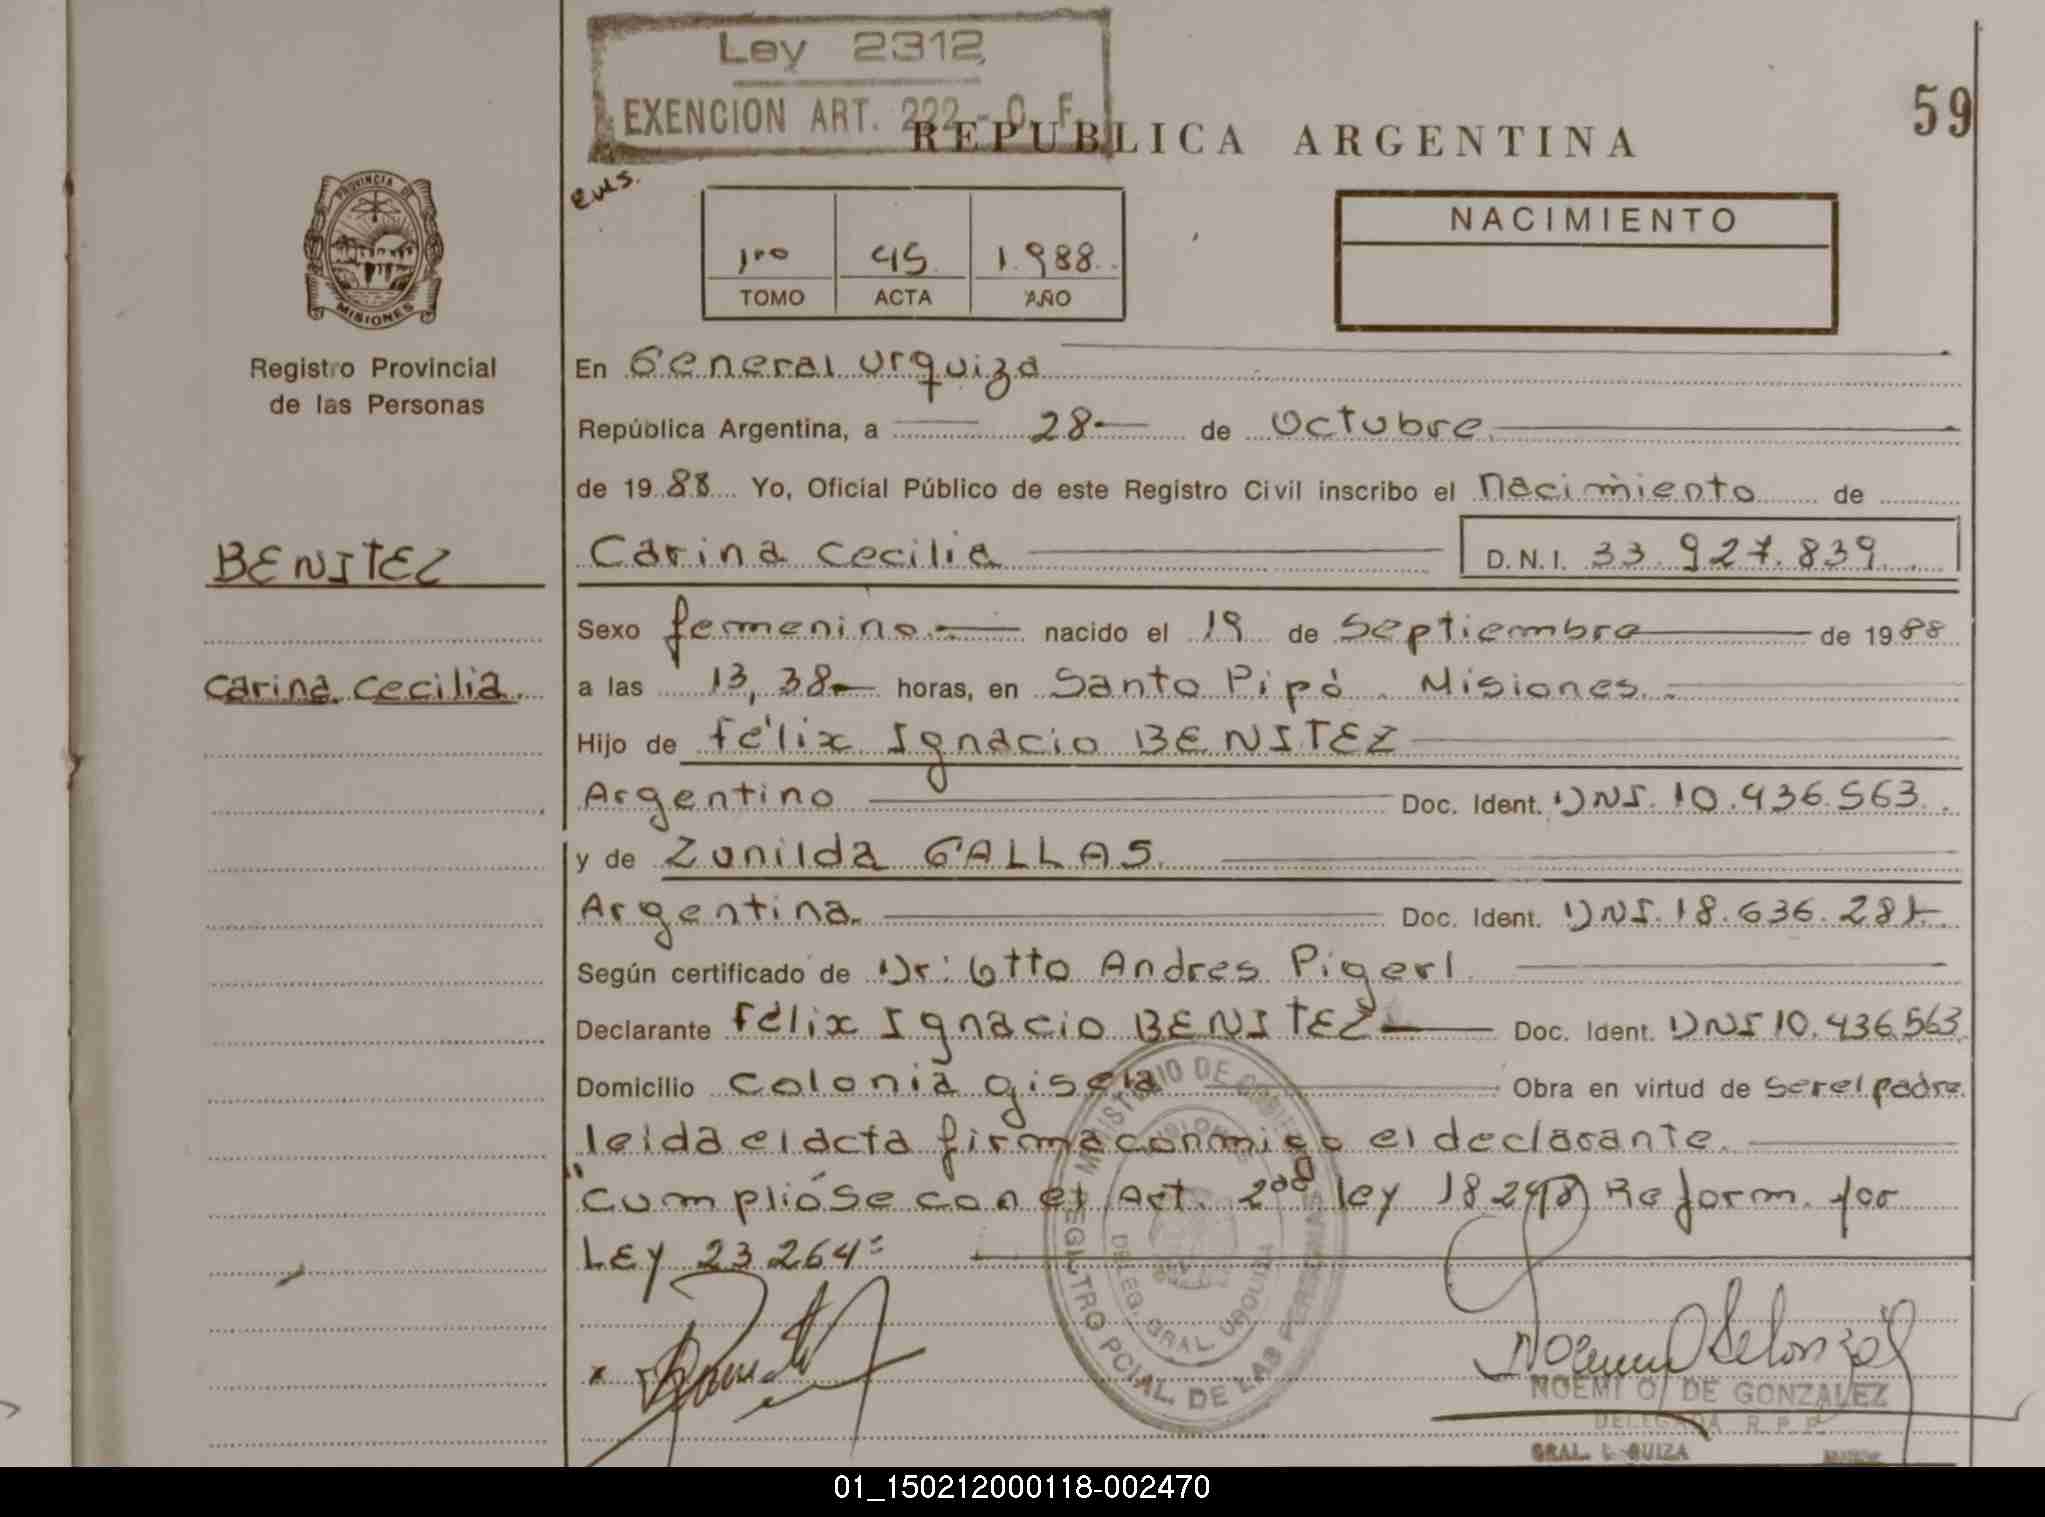 Ley 2312
EXENCION ART. 222 - C. F.
REPUBLICA ARGENTINA
59
PROVINCIA DE
MISIONES
Registro Provincial
de las Personas
1ro 45 1.988
TOMO ACTA AÑO
NACIMIENTO
En General Urquiza
República Argentina, a 28 de Octubre
de 19 88 Yo, Oficial Público de este Registro Civil inscribo el Nacimiento de
BENITEZ
Carina Cecilia D.N.I. 33.927.839
Sexo femenino nacido el 19 de Septiembre de 1988
Carina Cecilia
a las 13,38 horas, en Santo Pipó. Misiones.
Hijo de Félix Ignacio BENITEZ
Argentino Doc. Ident. DNI. 10.436.563
y de Zunilda GALLAS.
Argentina. Doc. Ident. DNI. 18.636.281
Según certificado de Dr: Otto Andres Pigerl
Declarante Félix Ignacio BENITEZ Doc. Ident. DNI 10.436.563
Domicilio Colonia gisela Obra en virtud de ser el padre
leida el acta firma conmigo el declarante.
"Cumplióse con el Art. 2do ley 18.248 Reform. por
LEY 23.264"
MINISTERIO DE GOBIERNO
MISIONES
REGISTRO PCIAL. DE LAS PERSONAS
DELEG. GRAL URQUIZA
NOEMI O. DE GONZALEZ
DELEGADA R. P. P.
GRAL. URQUIZA
01_150212000118-002470